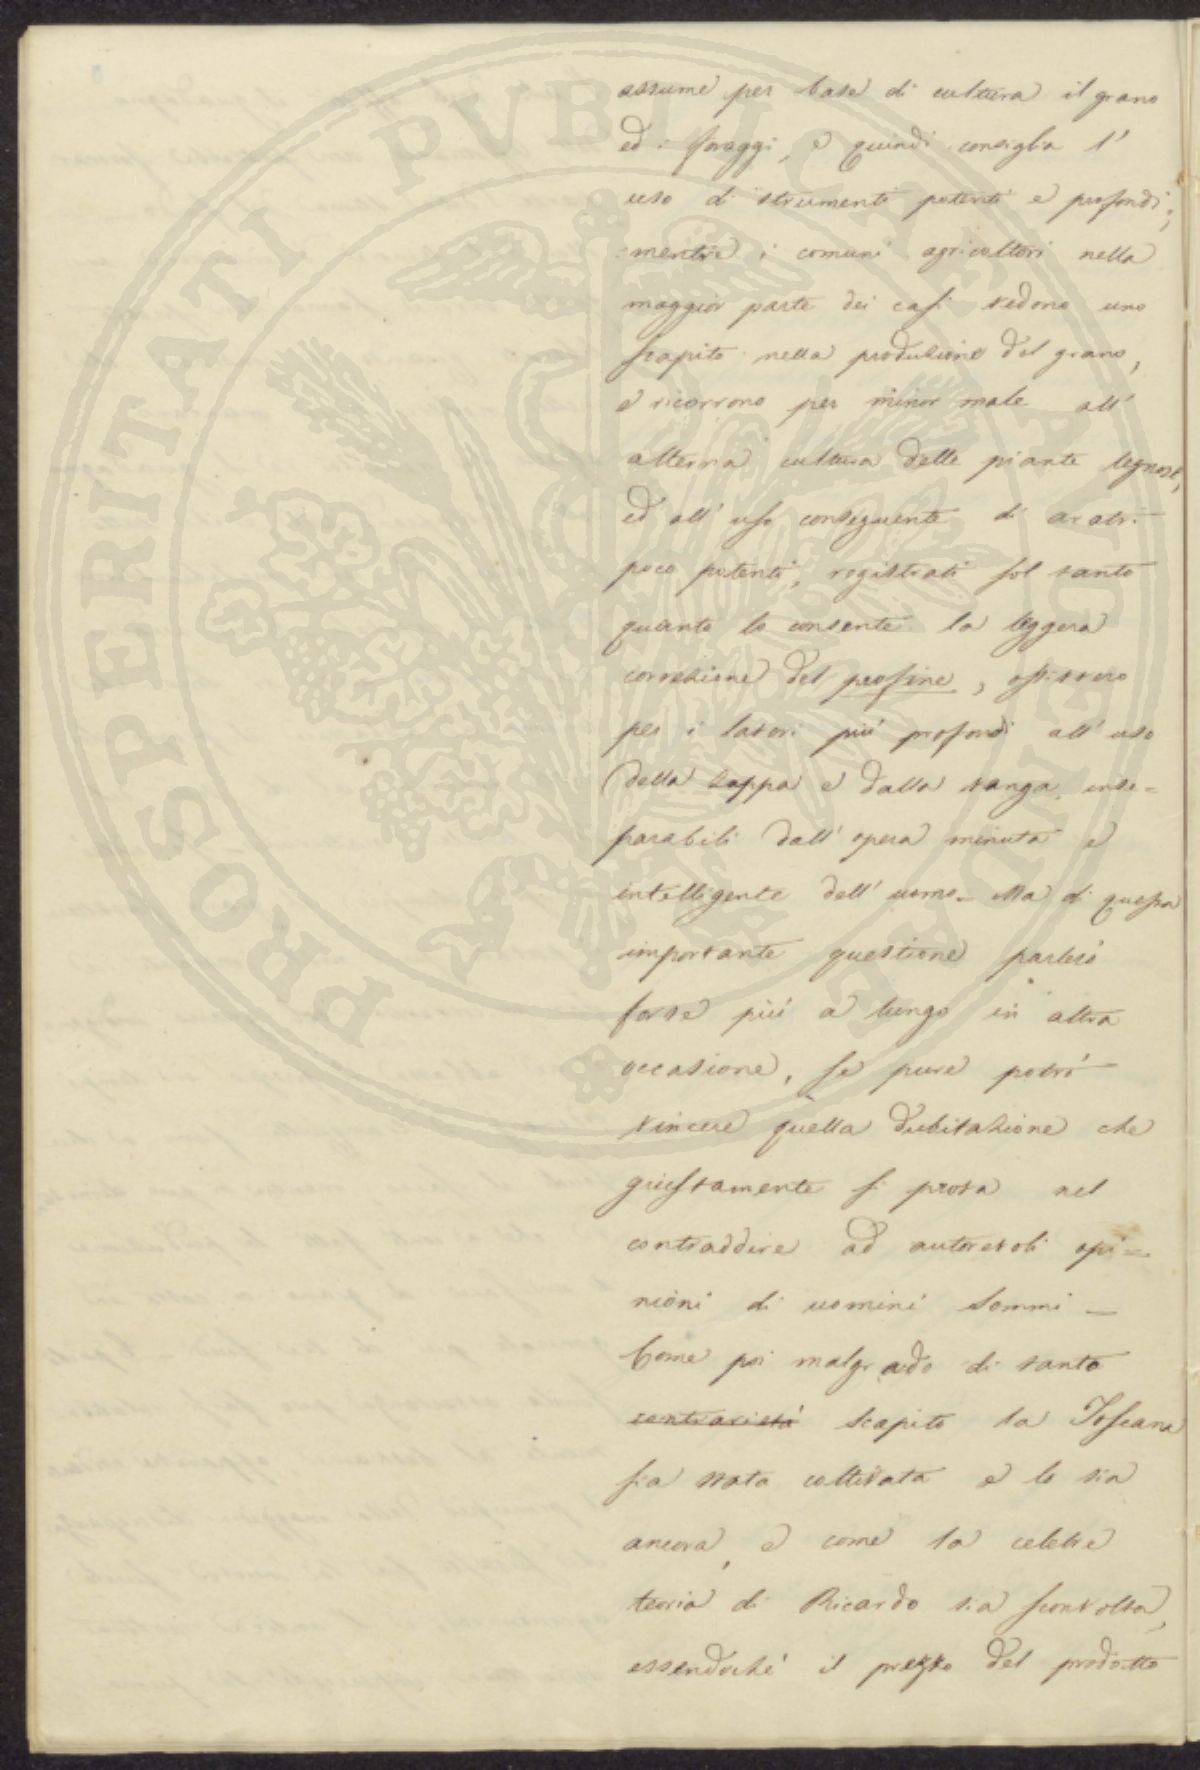 assume per base di cultura il grano
ed i foraggi, e quindi consiglia l'
uso di strumenti potenti e profondi;
mentre i comuni agricoltori nella
maggior parte dei casi vedono uno
scapito nella produzione del grano,
e ricorrono per minor male all'
alterna cultura delle piante legnose,
ed all' uso conseguente di aratri
poco potenti, registrati sol tanto
quanto lo consente la leggera
correzione del profine, ossivvero
per i lavori più profondi all' uso
della zappa e dalla vanga, inse=
parabili dall' opera minuta e
intelligente dell' uomo= Ma di questa
importante questione parlerò
forse più a lungo in altra
occasione, se pure potrò
vincere quella dubitazione che
giustamente si prova nel
contraddire ad autorevoli opi=
nioni di uomini sommi —
Come poi malgrado di tanto
contrarietà scapito la Toscana
sia stata coltivata e lo sia
ancora, e come la celebre
teoria di Ricardo sia sconvolta,
essendoché il prezzo del prodotto
PROSPERITATI PVBLICAE AVGENDAE